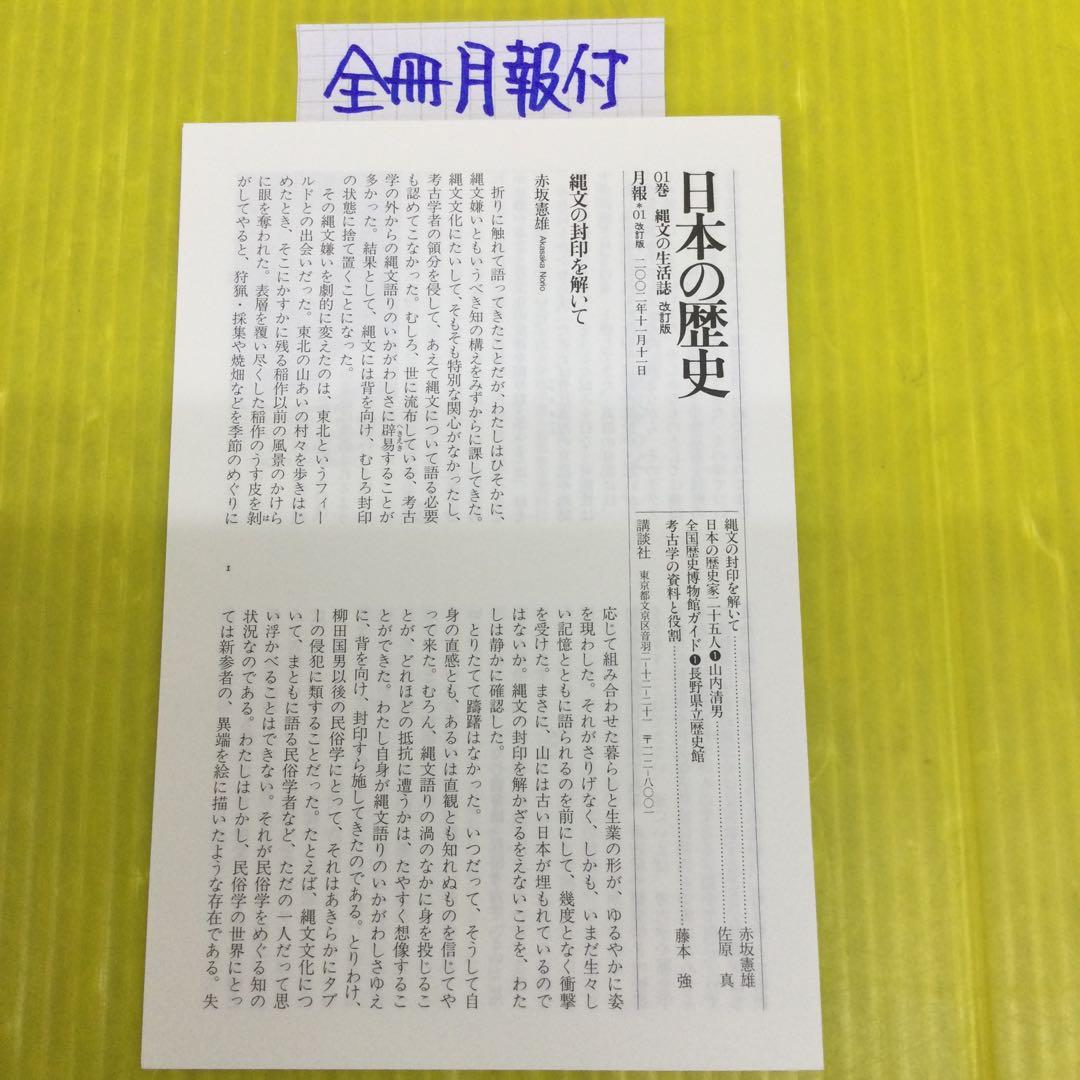 全冊月報付
日本の歴史
01巻 縄文の生活誌 改訂版
月報*01 改訂版 二〇〇二年十一月十一日
縄文の封印を解いて……赤坂憲雄
日本の歴史家二十五人❶山内清男……佐原 真
全国歴史博物館ガイド❶長野県立歴史館
考古学の資料と役割……藤本 強
講談社 東京都文京区音羽二-十二-二十一 〒一一二-八〇〇一
縄文の封印を解いて
赤坂憲雄 Akasaka Norio
折りに触れて語ってきたことだが、わたしはひそかに、
縄文嫌いともいうべき知の構えをみずからに課してきた。
縄文文化にたいして、そもそも特別な関心がなかったし、
考古学者の領分を侵して、あえて縄文について語る必要
も認めてこなかった。むしろ、世に流布している、考古
学の外からの縄文語りのいかがわしさに辟易へきえきすることが
多かった。結果として、縄文には背を向け、むしろ封印
の状態に捨て置くことになった。
その縄文嫌いを劇的に変えたのは、東北というフィー
ルドとの出会いだった。東北の山あいの村々を歩きはじ
めたとき、そこにかすかに残る稲作以前の風景のかけら
に眼を奪われた。表層を覆い尽くした稲作のうす皮を剝は
がしてやると、狩猟・採集や焼畑などを季節のめぐりに
1
応じて組み合わせた暮らしと生業の形が、ゆるやかに姿
を現わした。それがさりげなく、しかも、いまだ生々し
い記憶とともに語られるのを前にして、幾度となく衝撃
を受けた。まさに、山には古い日本が埋もれているので
はないか。縄文の封印を解かざるをえないことを、わた
しは静かに確認した。
とりたてて躊躇はなかった。いつだって、そうして自
身の直感とも、あるいは直観とも知れぬものを信じてや
って来た。むろん、縄文語りの渦のなかに身を投じるこ
とが、どれほどの抵抗に遭うかは、たやすく想像するこ
とができた。わたし自身が縄文語りのいかがわしさゆえ
に、背を向け、封印すら施してきたのである。とりわけ、
柳田国男以後の民俗学にとって、それはあきらかにタブ
ーの侵犯に類することだった。たとえば、縄文文化につ
いて、まともに語る民俗学者など、ただの一人だって思
い浮かべることはできない。それが民俗学をめぐる知の
状況なのである。わたしはしかし、民俗学の世界にとっ
ては新参者の、異端を絵に描いたような存在である。失